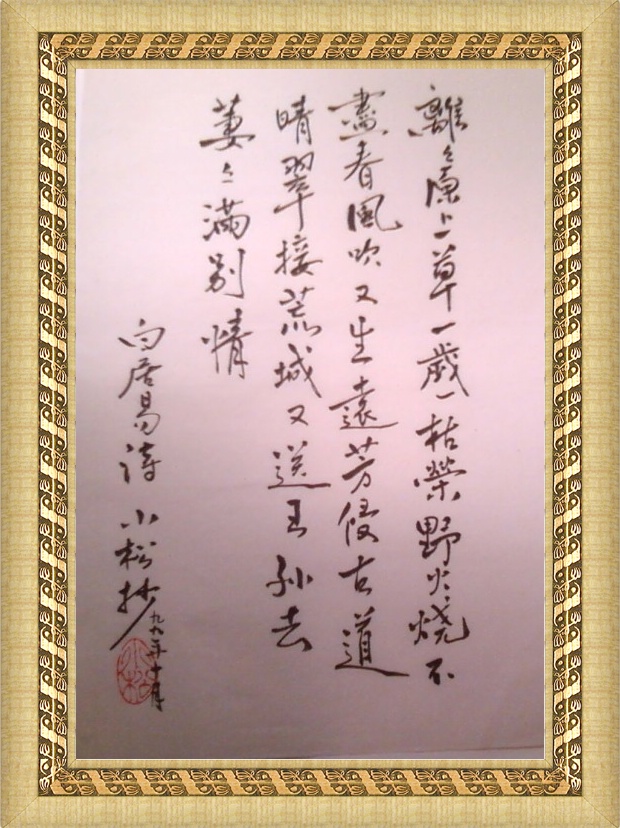 離々原上草一歲一枯榮野火燒不
盡春風吹又生遠芳侵古道
晴翠接荒城又送王孫去
萋々滿別情
白居易詩 小松抄
九九年十月
小松